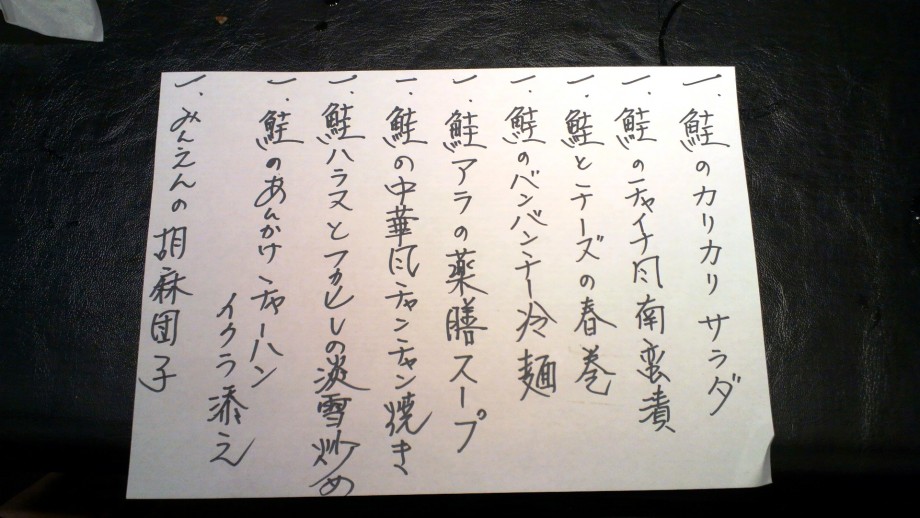 一. 鮭のカリカリ サラダ
一. 鮭のチャイナ風南蛮漬
一. 鮭とチーズの春巻
一. 鮭のバンバンチー冷麺
一. 鮭アラの薬膳スープ
一. 鮭の中華風チャンチャン焼き
一. 鮭ハラスとフカヒレの淡雪炒め
一. 鮭のあんかけチャーハン
イクラ添え
一. みんえんの胡麻団子